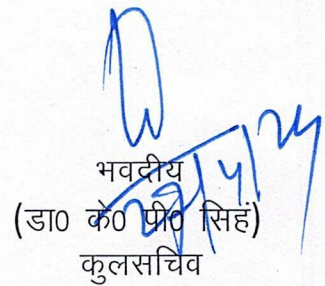 भवदीय
(डा0 के0 पी0 सिहं)
कुलसचिव